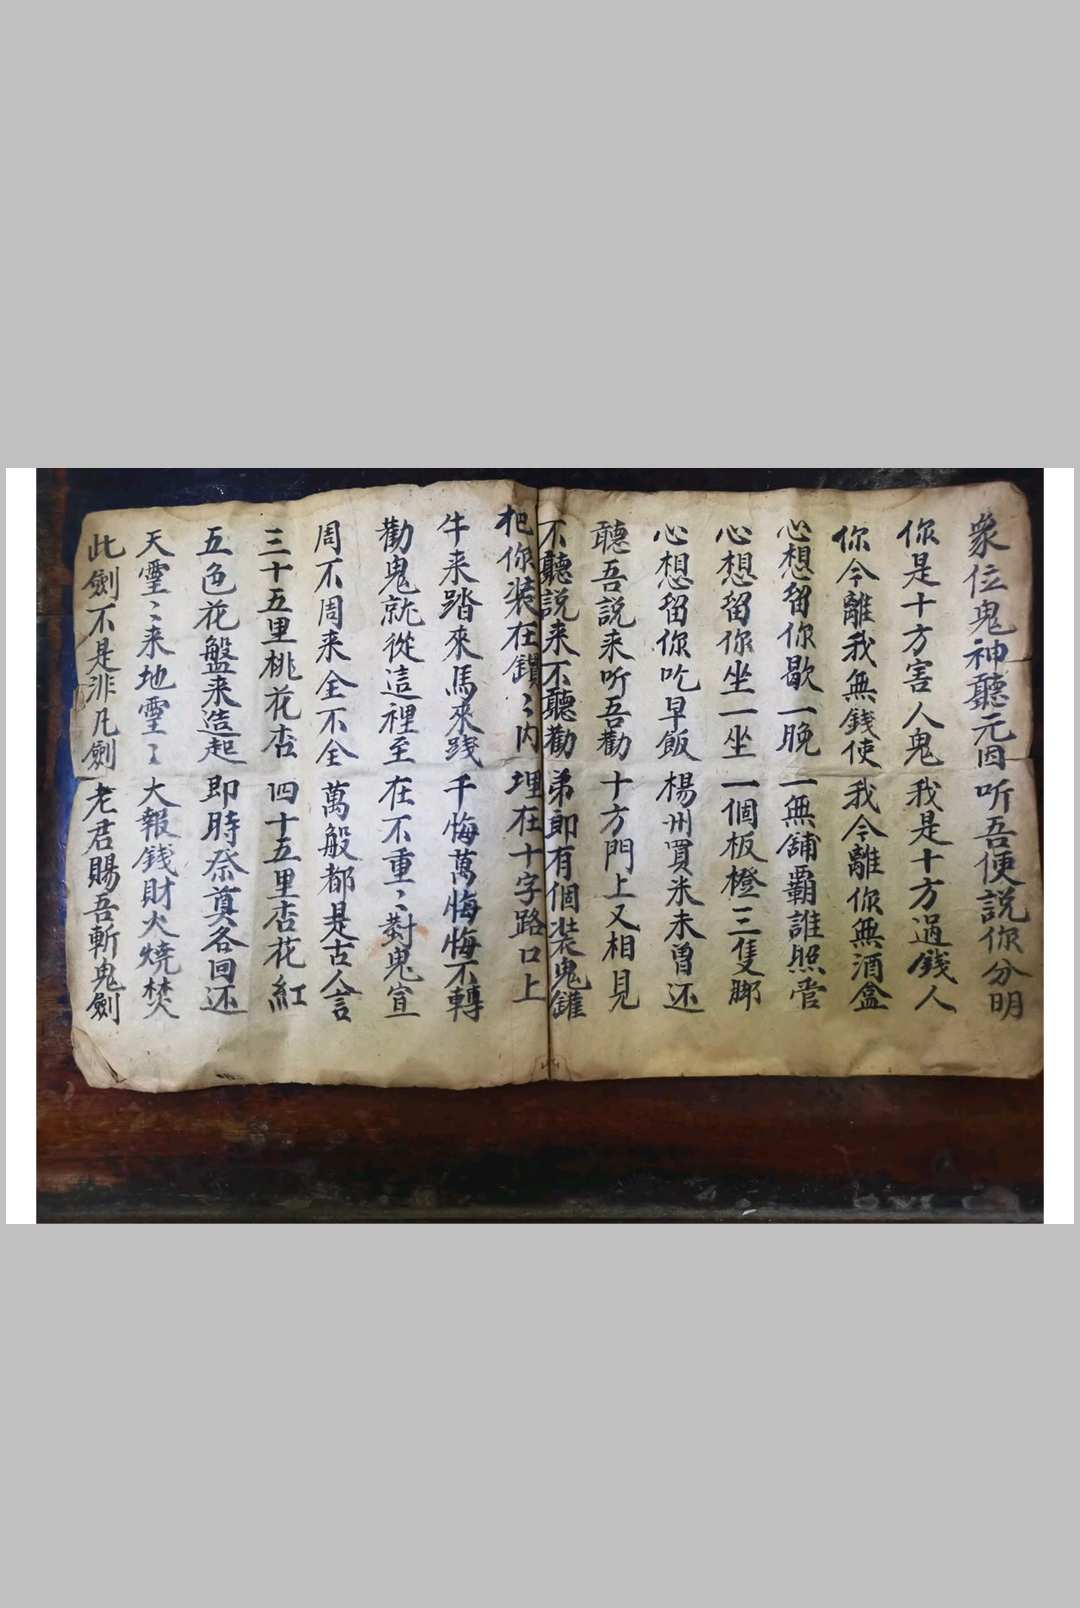 衆位鬼神聽元因 听吾便説你分明
你是十方害人鬼 我是十方過錢人
你今離我無錢使 我今離你無酒盒
心想留你歇一晚 一無舖霸誰照管
心想留你坐一坐 一個板橙三隻脚
心想留你吃早飯 楊州買米未曾还
聽吾説来听吾勸 十方門上又相見
不聽説来不聽勸 弟郎有個裝鬼罐
把你装在鑽〻内 埋在十字路口上
牛来踏來馬來踐 千悔萬悔悔不轉
勸鬼就從這裡至 在不重〻對鬼宣
周不周来全不全 萬般都是古人言
三十五里桃花杏 四十五里杏花紅
五色花盤来造起 即時奈奠各回还
天靈〻来地靈〻 大報錢財火燒焚
此劍不是非凡劍 老君賜吾斬鬼劍